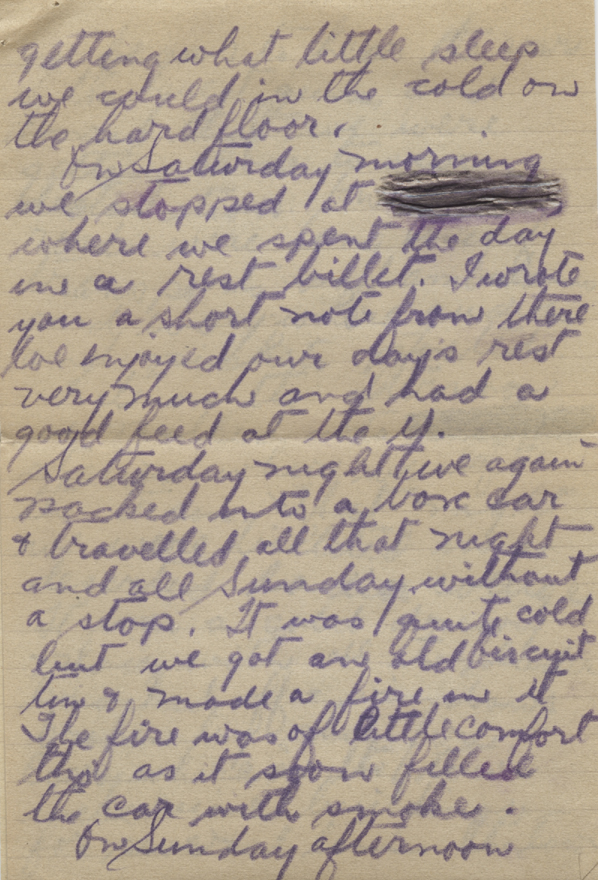 getting what little sleep
we could in the cold on
the hard floor.
On Saturday morning
we stopped at
where we spent the day
in a rest billet. I wrote
you a short note from there
We enjoyed our day's rest
very much and had a
good feed at the Y.
Saturday night we again
packed into a box car
& travelled all that night
and all Sunday without
a stop. It was quite cold
but we got an old biscuit
tin & made a fire in it
The fire was of little comfort
tho' as it soon filled
the car with smoke.
On Sunday afternoon